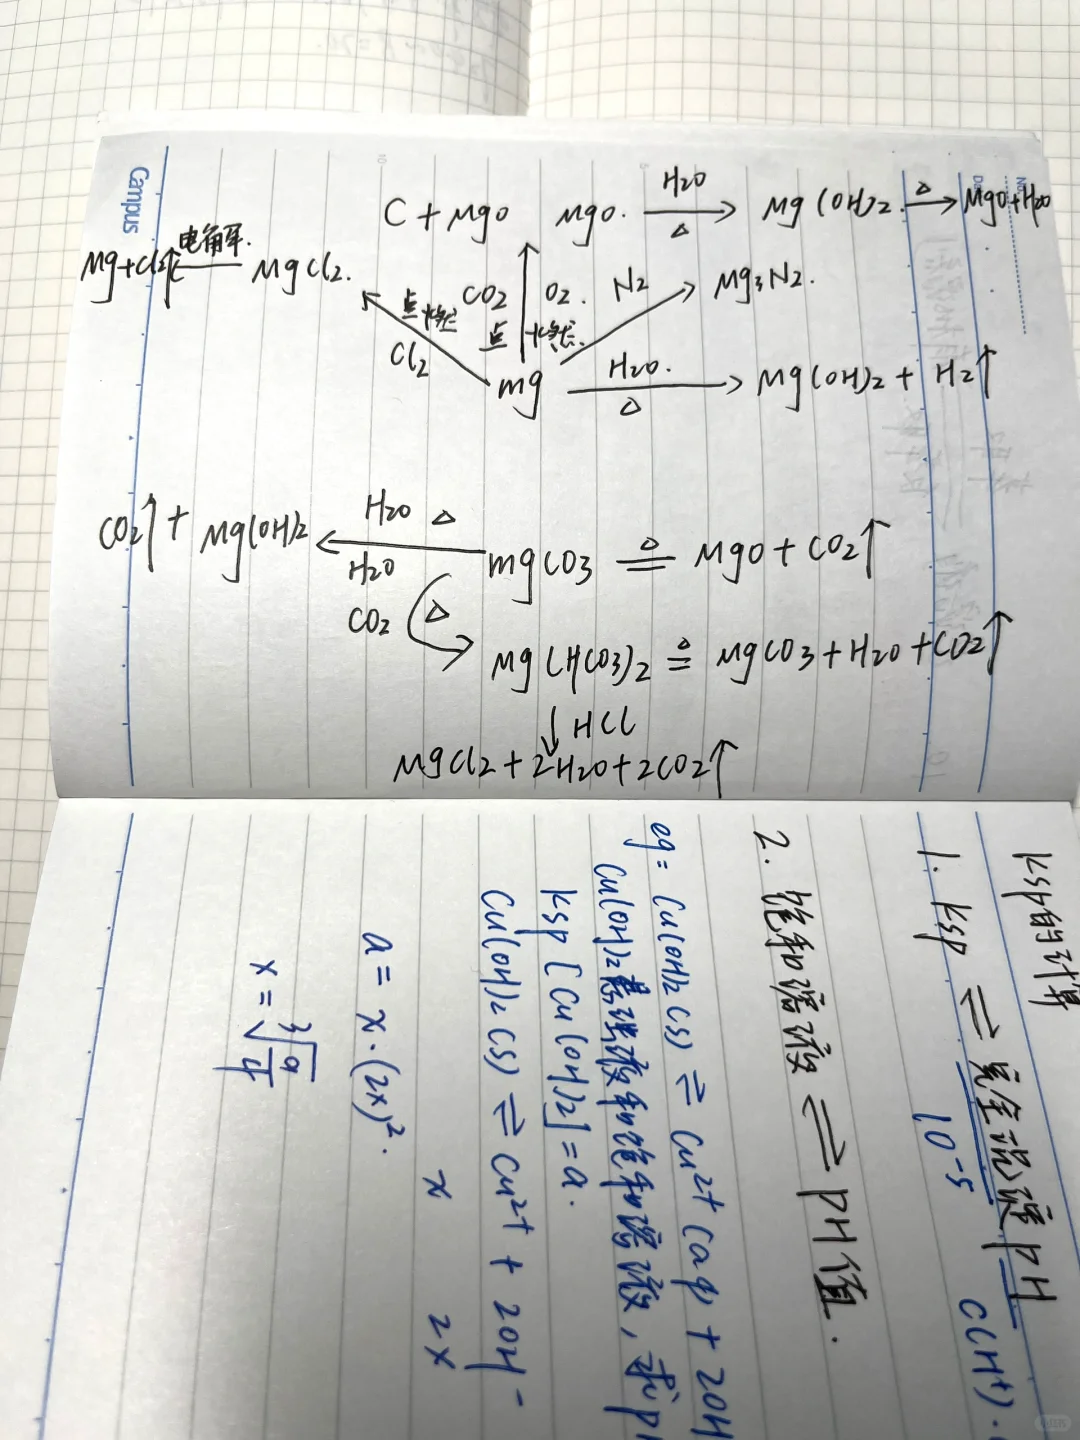 Campus
No.
C + MgO
MgO. H2O △ → Mg(OH)2. △ → MgO+H2O
Mg+Cl2↑ ← 电解. MgCl2.
CO2 点燃 O2.
N2 → Mg3N2.
点燃 Cl2
Mg H2O. △ → Mg(OH)2 + H2↑
CO2↑ + Mg(OH)2 ← H2O △ MgCO3 △ = MgO + CO2↑
H2O
CO2 △
Mg(HCO3)2 △ = MgCO3 + H2O + CO2↑
↓ HCl
MgCl2 + 2H2O + 2CO2↑
ksp的计算
1. ksp ⇌ 完全沉淀PH
10-5 C(H+).
2. 饱和溶液 ⇌ PH值.
eg= Cu(OH)2 (s) ⇌ Cu2+ (aq) + 2OH
Cu(OH)2悬浊液和饱和溶液, 求P
ksp [Cu(OH)2] = a.
Cu(OH)2 (s) ⇌ Cu2+ + 2OH-
x 2x
a = x·(2x)2.
x = 3√a/4